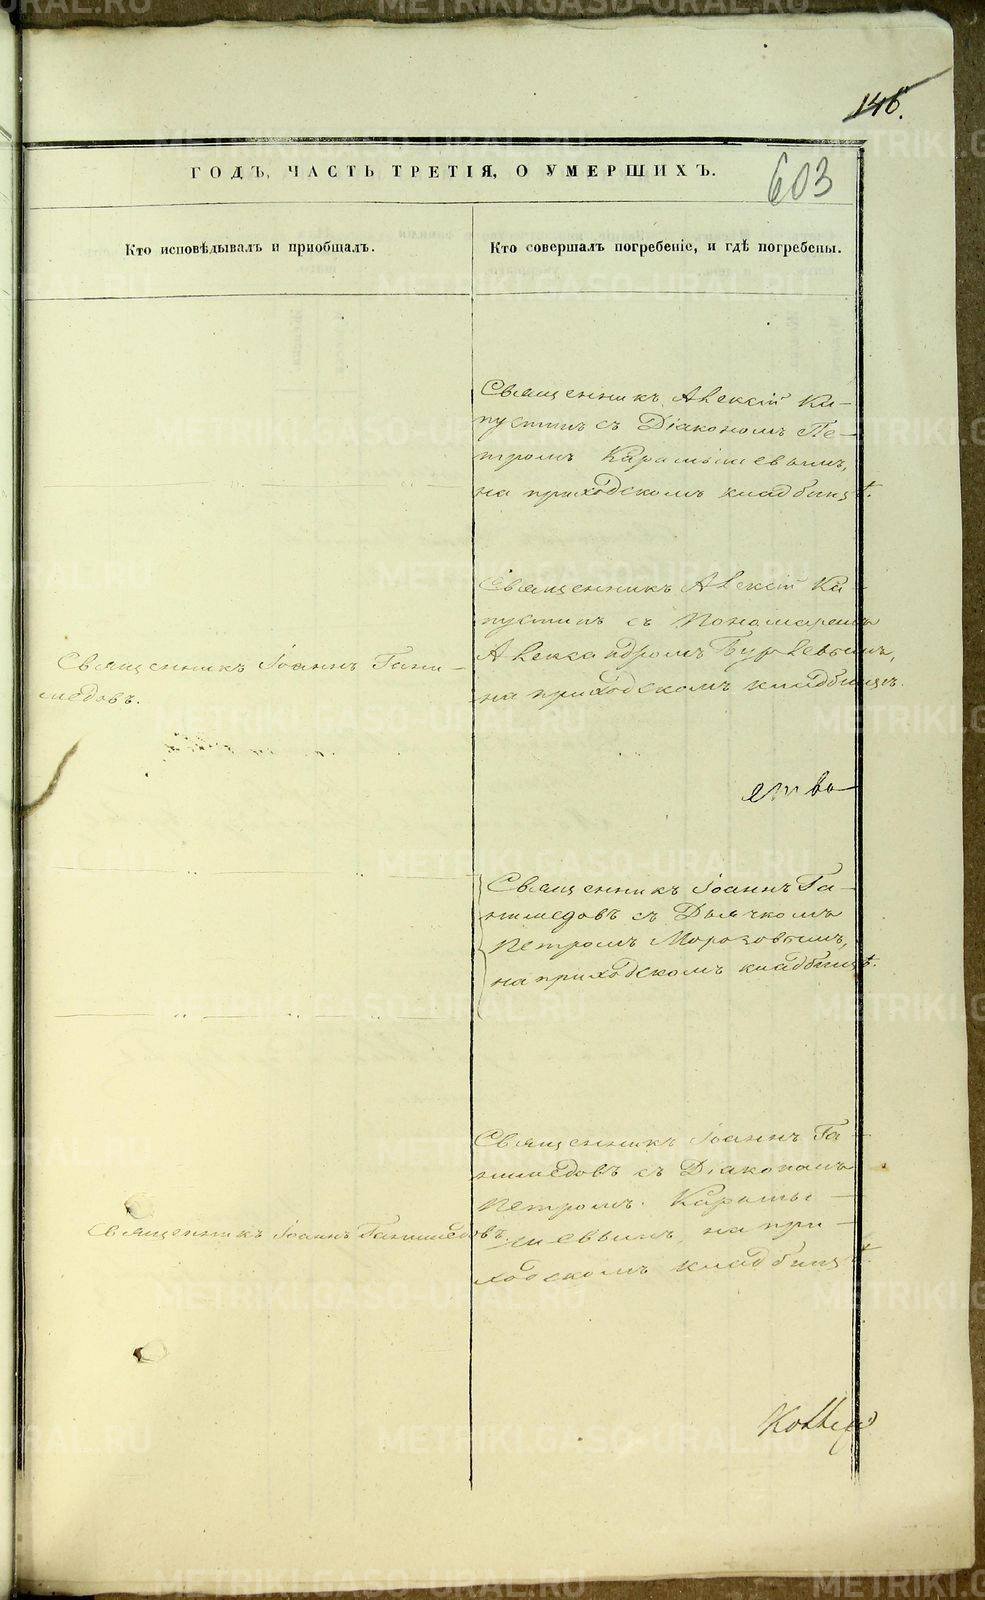 146.
ГОДЪ, ЧАСТЬ ТРЕТІЯ, О УМЕРШИХЪ.
603
Кто исповѣдывалъ и приобщалъ.
Кто совершалъ погребеніе, и гдѣ погребены.
Священникъ Алексій Ка-
пустинъ съ Діакономъ Пе-
тромъ Карамышевымъ,
на приходскомъ кладбищѣ.
Священникъ Іоаннъ Гани-
медовъ.
Священникъ Алексій Ка-
пустинъ съ Пономаремъ
Александромъ Бурлевымъ,
на приходскомъ кладбищѣ.
ства
Священникъ Іоаннъ Га-
нимедовъ съ Дьячкомъ
Петромъ Морозовымъ,
на приходскомъ кладбищѣ.
Священникъ Іоаннъ Ганимедовъ.
Священникъ Іоаннъ Га-
нимедовъ съ Діакономъ
Петромъ Карамы-
шевымъ, на при-
ходскомъ кладбищѣ.
METRIKI.GASO-URAL.RU